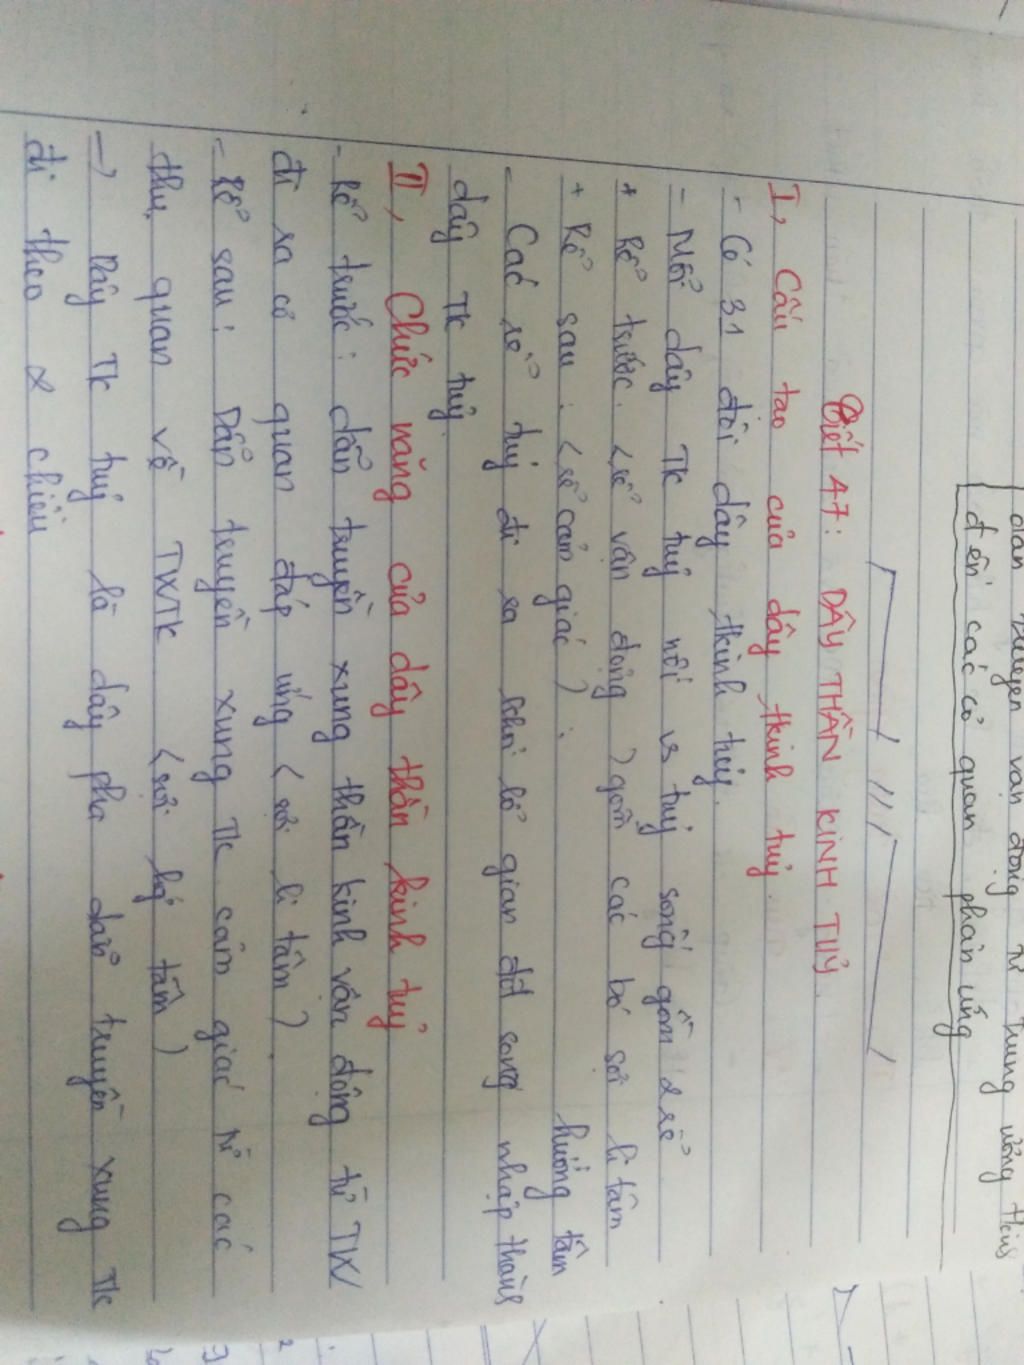 dẫn truyền vận động từ trung ương
đến các cơ quan phản ứng
Tiết 47: DÂY THẦN KINH TUỶ.
I, Cấu tạo của dây tkinh tuỷ.
- Có 31 đôi dây tkinh tuỷ.
- Mỗi dây TK tuỷ nối vs tuỷ sống gồm 2 rễ
+ Rễ trước. (rễ vận động) gồm các bó sợi li tâm
+ Rễ sau. (rễ cảm giác). hướng tâm
- Các rễ tuỷ đi ra khỏi lỗ gian đốt song nhập thành
dây TK tuỷ.
II, Chức năng của dây thần kinh tuỷ
- Rễ trước: dẫn truyền xung thần kinh vận động từ TW
đi ra cơ quan đáp ứng (sợi li tâm).
- Rễ sau: Dẫn truyền xung TK cảm giác từ các
thụ quan về TWTK (sợi hướng tâm)
→ Dây TK tuỷ là dây pha dẫn truyền xung TK
đi theo 2 chiều